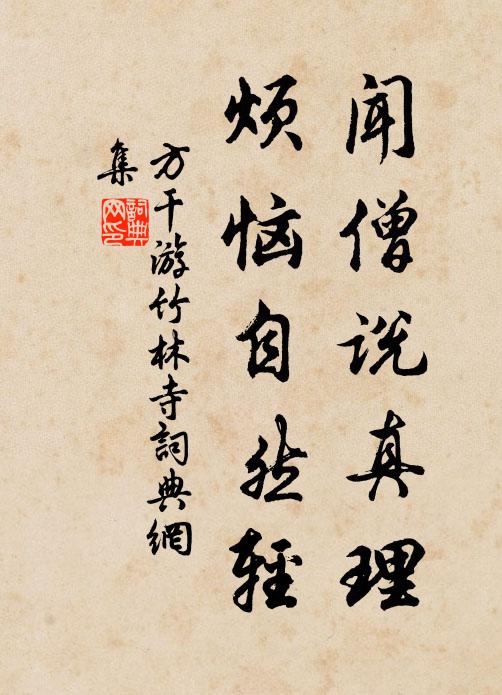 闻僧说真理
烦恼自然轻
方干游竹林寺詞典網
集
詞典
网印